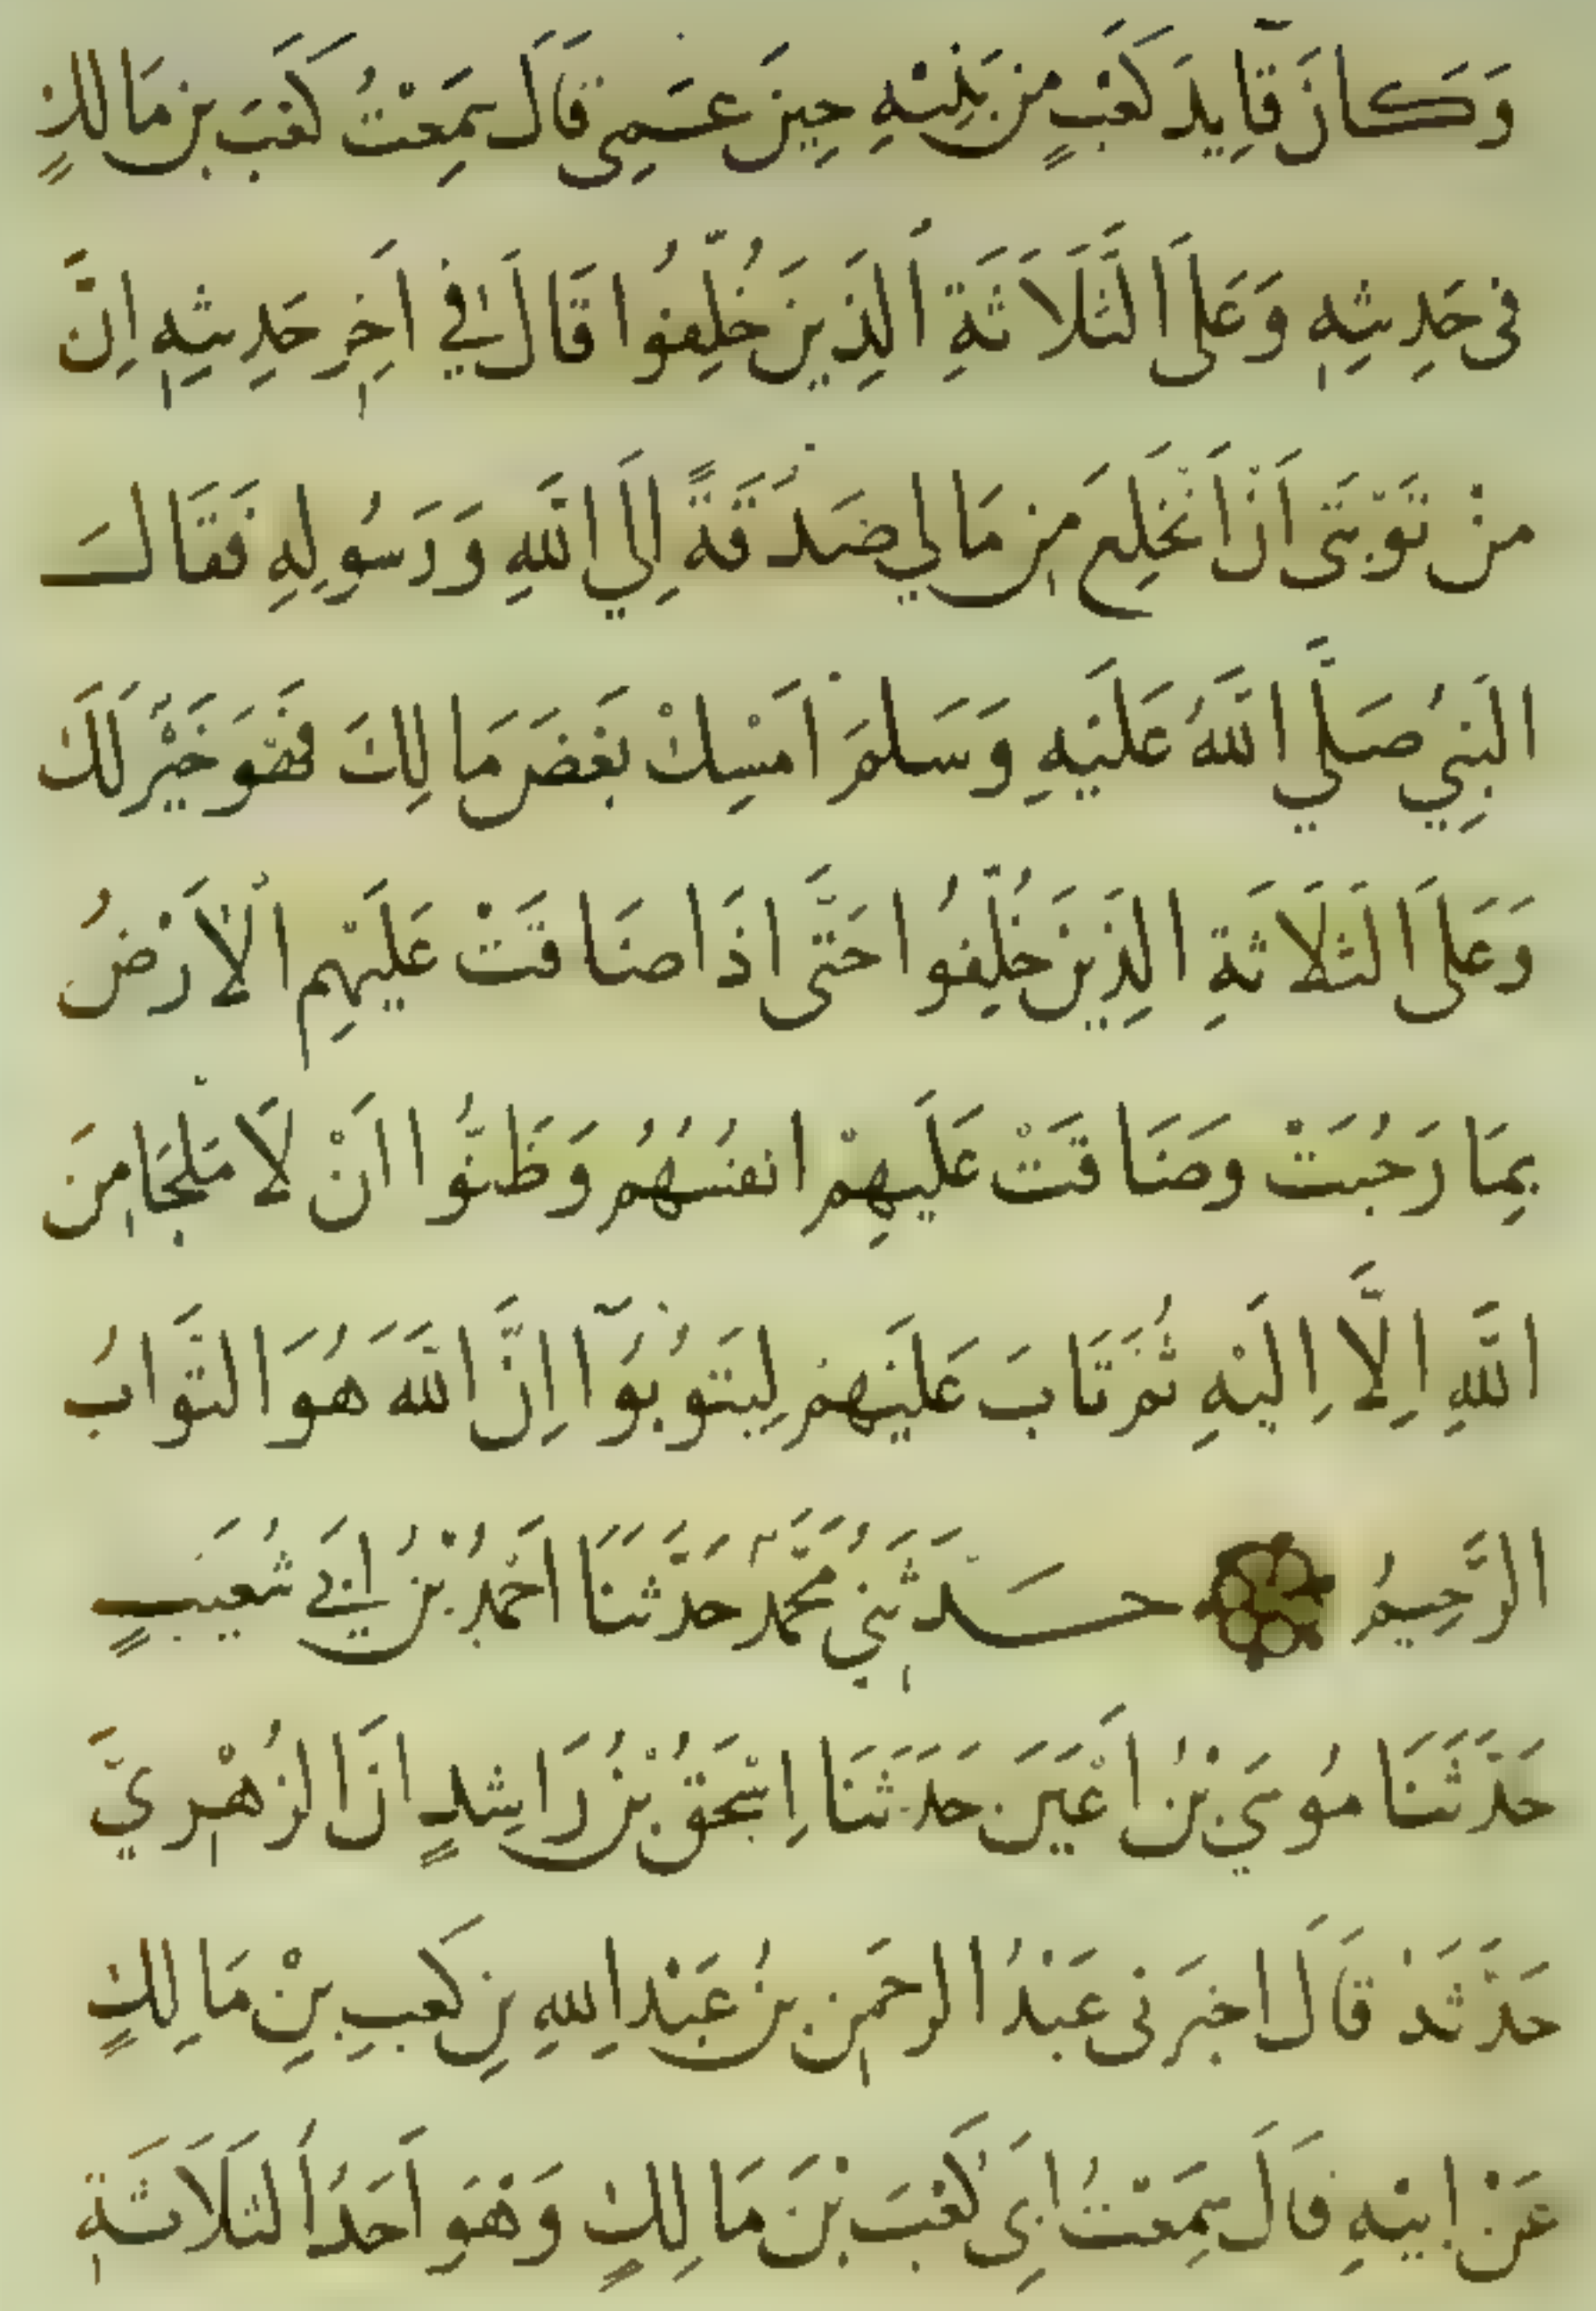 وَكَانَ قَآيِدَ كَعْبٍ مِن بَنِيْهِ حِينَ عَمِى قَالَ سَمِعْتُ كَعْبَ بن مَالكٍ
فى حَدِيثِهِ وَعَلَى الثَّلَاثَةِ الَّذِينَ خُلِّفُوا قَالَ فِي اَخِرِ حَدِيثِهِ اِنَّ
منْ تَوْبَتَى اَنْ اَنْخَلِعَ مِن مَالِي صَدَقَةً اِلَي اللَّهِ وَرَسُولِهِ فَقَالَ
النَبِيُ صَلَّي اللَّهُ عَلَيْهِ وَسَلمَ اَمْسِكْ بَعْضَ مَالِكَ فَهُوَ خَيْرٌ لَكَ
وَعَلَى الثَلَاثَةِ الَّذِينَ خُلِّفُوا حَتَّى اِذَا ضَاقَتْ عَلَيْهِمِ الْاَرْضُ
بِمَا رَحُبَتْ وَضَاقَتْ عَلَيهِمْ انفُسُهُمُ وَظَنُّوا اَنْ لَا مَلْجَا مِنَ
اللَّهِ اِلَّا اِلَيْهِ ثُمَ تَابَ عَلَيْهِمْ لِيَتُوبُوآ اِنَّ اللَّهَ هُوَ التَوَّابُ
الرَّحِيمُ حَدَّثَنِي مُحَمَّدٌ حَدَّثَنَا اَحْمَدُ بْنُ اَبِي شُعَيبٍ
حَدَّثَنَا مُوسَي بْنُ اَعْيَنَ حَدَثَنَا اِسْحَقُ بْنُ رَاشِدٍ اَنَّ الزُهْرِيَّ
حَدَّثَهُ قَالَ اخبَرَنى عَبْدُ الرحمَنِ بنُ عَبْدِ اللهِ بنِ كَعبِ بنِ مَالِكٍ
عَنْ ابيْهِ قَالَ سَمِعْتُ اَبِى كَعْبَ بْنَ مَالِكٍ وَهْوَ اَحَدُ الثَلَاثَةِ